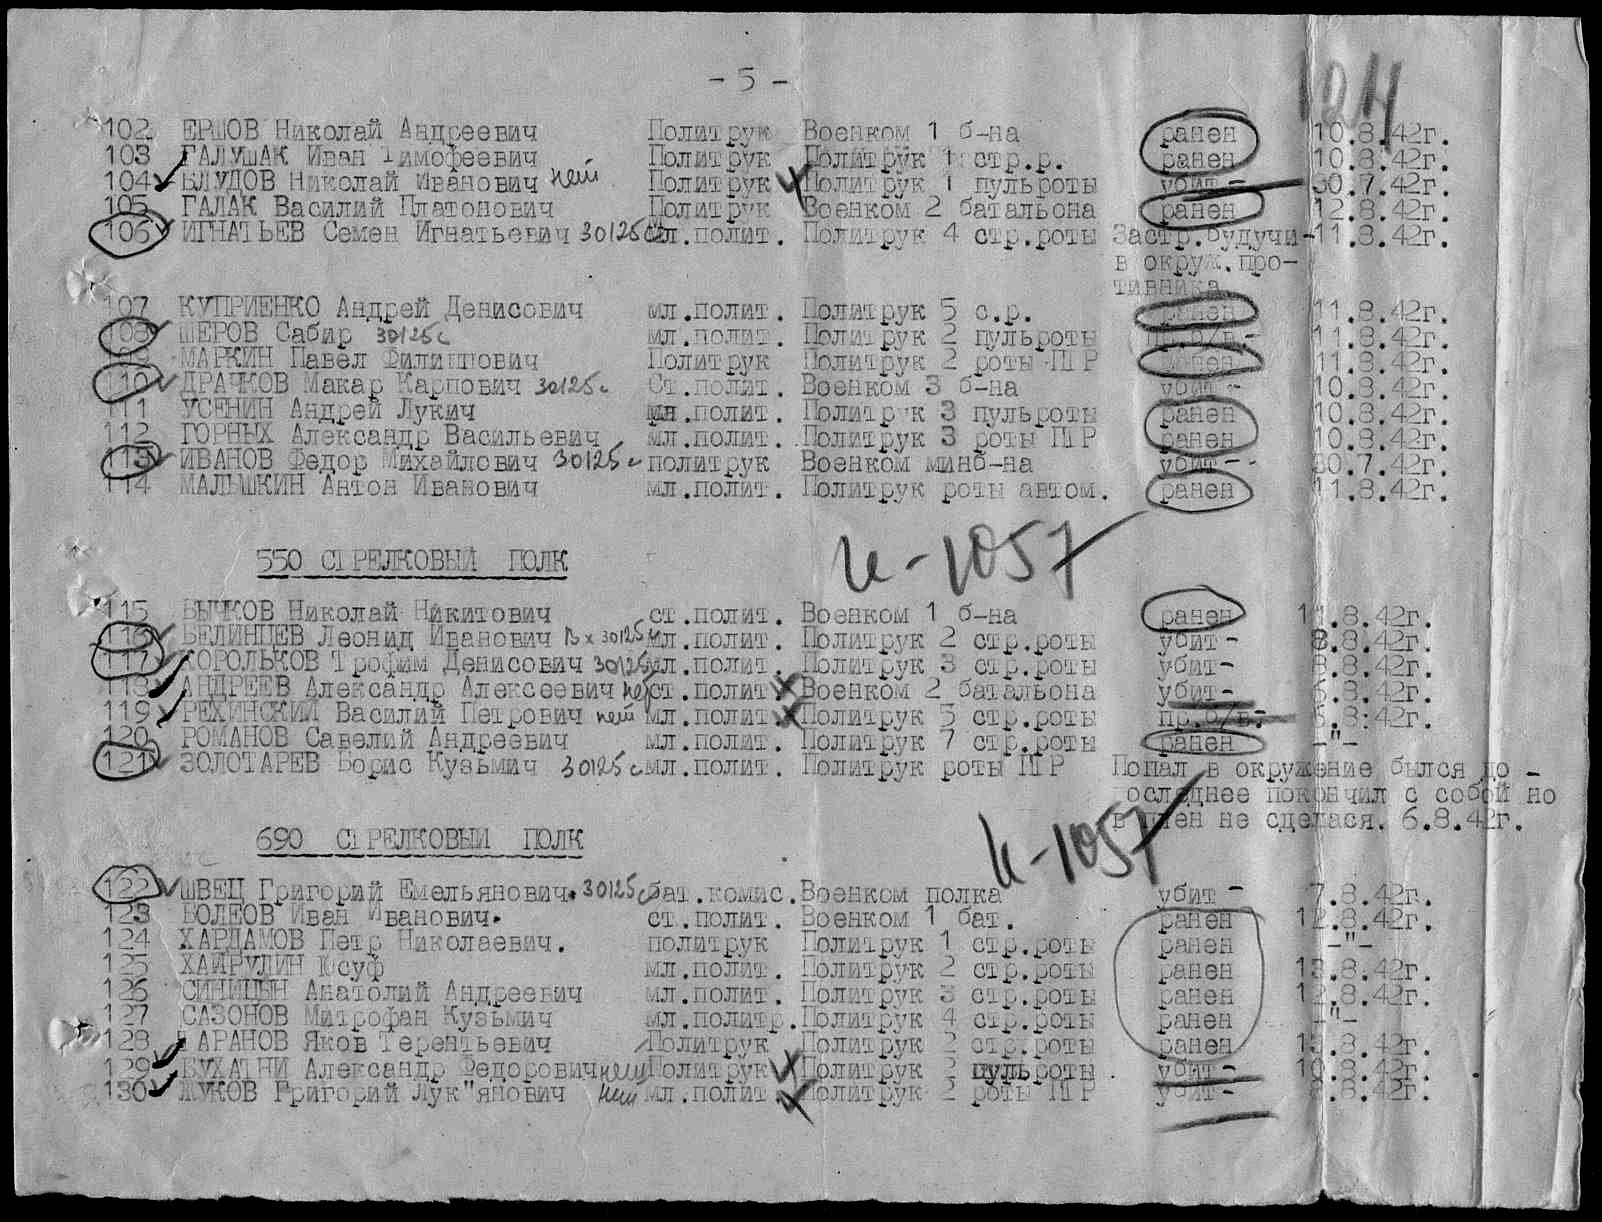 - 5 -
124
102 ЕРШОВ Николай Андреевич Политрук Военком 1 б-на ранен 10.8.42г.
103 ГАЛУШАК Иван Тимофеевич Политрук Политрук 1 стр.р. ранен 10.8.42г.
104 БЛУДОВ Николай Иванович нет Политрук Политрук 1 пульроты убит- 30.7.42г.
105 ГАЛАК Василий Платонович Политрук Военком 2 батальона ранен 12.8.42г.
106 ИГНАТЬЕВ Семен Игнатьевич 30125с мл.полит. Политрук 4 стр.роты Застр.будучи- 11.8.42г.
в окруж.про-
тивника
107 КУПРИЕНКО Андрей Денисович мл.полит. Политрук 5 с.р. ранен 11.8.42г.
108 ШЕРОВ Сабир 30125с мл.полит. Политрук 2 пульроты пр.б/в.- 11.8.42г.
109 МАРКИН Павел Филиппович Политрук Политрук 2 роты ПТР ранен 11.8.42г.
110 ДРАЧКОВ Макар Карпович 30125с Ст.полит. Военком 3 б-на убит- 10.8.42г.
111 УСЕНИН Андрей Лукич мл.полит. Политрук 3 пульроты ранен 10.8.42г.
112 ГОРНЫХ Александр Васильевич мл.полит. Политрук 3 роты ПТР ранен 10.8.42г.
113 ИВАНОВ Федор Михайлович 30125с политрук Военком минб-на убит-- 30.7.42г.
114 МАЛЫШКИН Антон Иванович мл.полит. Политрук роты автом. ранен 11.8.42г.
и-1057
550 СТРЕЛКОВЫЙ ПОЛК
115 БЫЧКОВ Николай Никитович ст.полит. Военком 1 б-на ранен 11.8.42г.
116 БЕЛИНЦЕВ Леонид Иванович Вх 30125 мл.полит. Политрук 2 стр.роты убит- 8.8.42г.
117 КОРОЛЬКОВ Трофим Денисович 30125 мл.полит. Политрук 3 стр.роты убит- 8.8.42г.
118 АНДРЕЕВ Александр Алексеевич нет ст.полит Военком 2 батальона убит- 6.8.42г.
119 РЕХИНСКИЙ Василий Петрович нет мл.полит Политрук 5 стр.роты пр.б/в.- 6.8.42г.
120 РОМАНОВ Савелий Андреевич мл.полит. Политрук 7 стр.роты ранен -"-
121 ЗОЛОТАРЕВ Борис Кузьмич 30125с мл.полит. Политрук роты ПТР Попал в окружение былся до -
последнее покончил с собой но
в плен не сделася. 6.8.42г.
и-1057
690 СТРЕЛКОВЫЙ ПОЛК
122 ШВЕЦ Григорий Емельянович. 30125с бат.комис. Военком полка убит - 7.8.42г.
123 БОЛЕОВ Иван Иванович. ст.полит. Военком 1 бат. ранен 12.8.42г.
124 ХАРДАМОВ Петр Николаевич. политрук Политрук 1 стр.роты ранен -"-
125 ХАЙРУЛИН Юсуф мл.полит. Политрук 2 стр.роты ранен 13.8.42г.
126 СИНИЦЫН Анатолий Андреевич мл.полит. Политрук 3 стр.роты ранен 12.8.42г.
127 САЗОНОВ Митрофан Кузьмич мл.политр. Политрук 4 стр.роты ранен -"-
128 ТАРАНОВ Яков Терентьевич Политрук Политрук 2 стр.роты ранен 13.8.42г.
129 БУХАТНИ Александр Федорович нет Политрук Политрук 2 пульроты убит- 10.8.42г.
130 ЖУКОВ Григорий Лук"янович нет мл.полит. Политрук 2 роты ПТР убит- 8.8.42г.